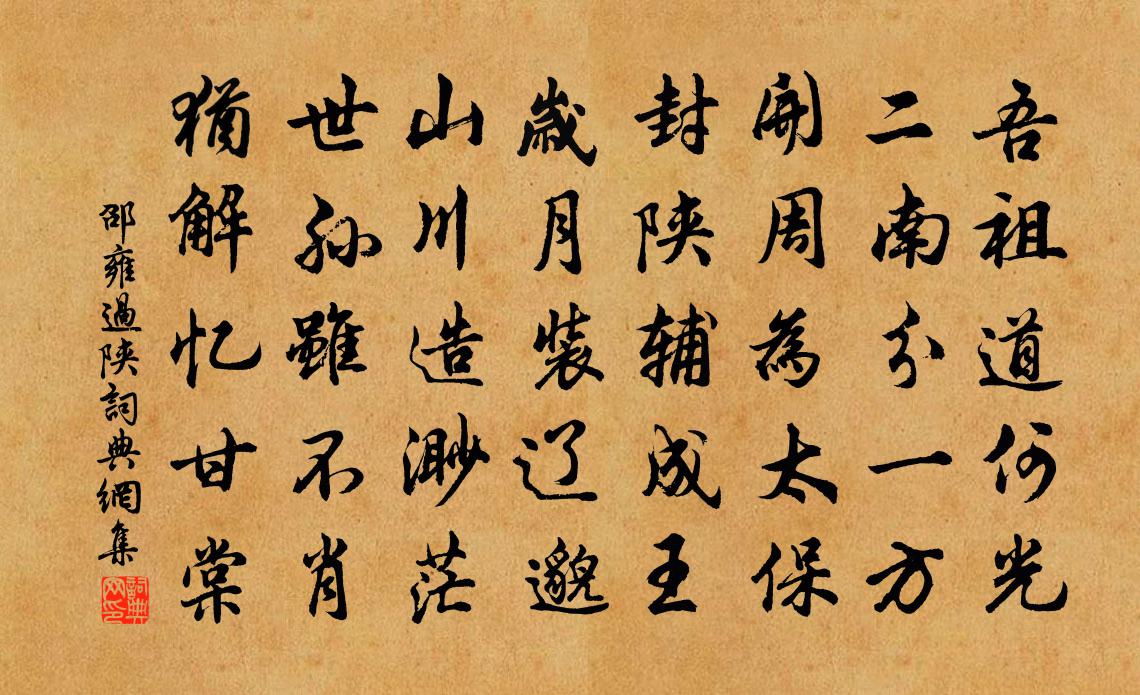 吾祖道何光
二南分一方
開周為太保
封陝辅成王
歲月裝辽邈
山川造渺茫
世孫雖不肖
猶解忆甘棠
邵雍過陝詞典網集
詞典网印